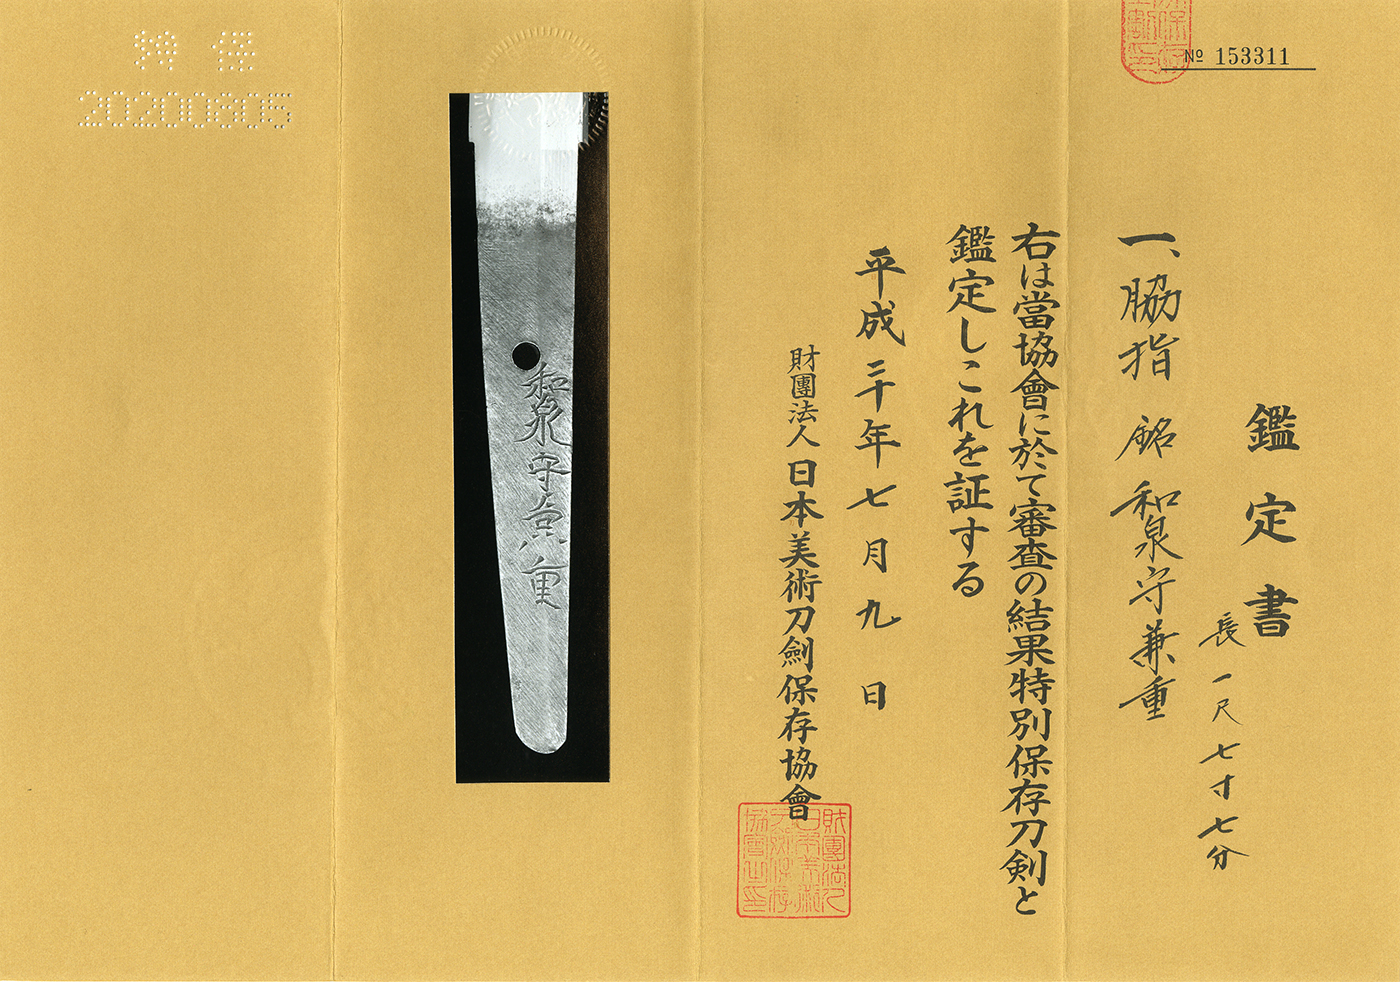 № 153311
鑑定書
一、脇指 銘 和泉守兼重
長一尺七寸七分
右は當協會に於て審査の結果特別保存刀剣と
鑑定しこれを証する
平成二十年七月九日
財團法人日本美術刀劍保存協會
財團法人
日本美術
刀劍保存
協會之印
和泉守兼重
特保
20200805